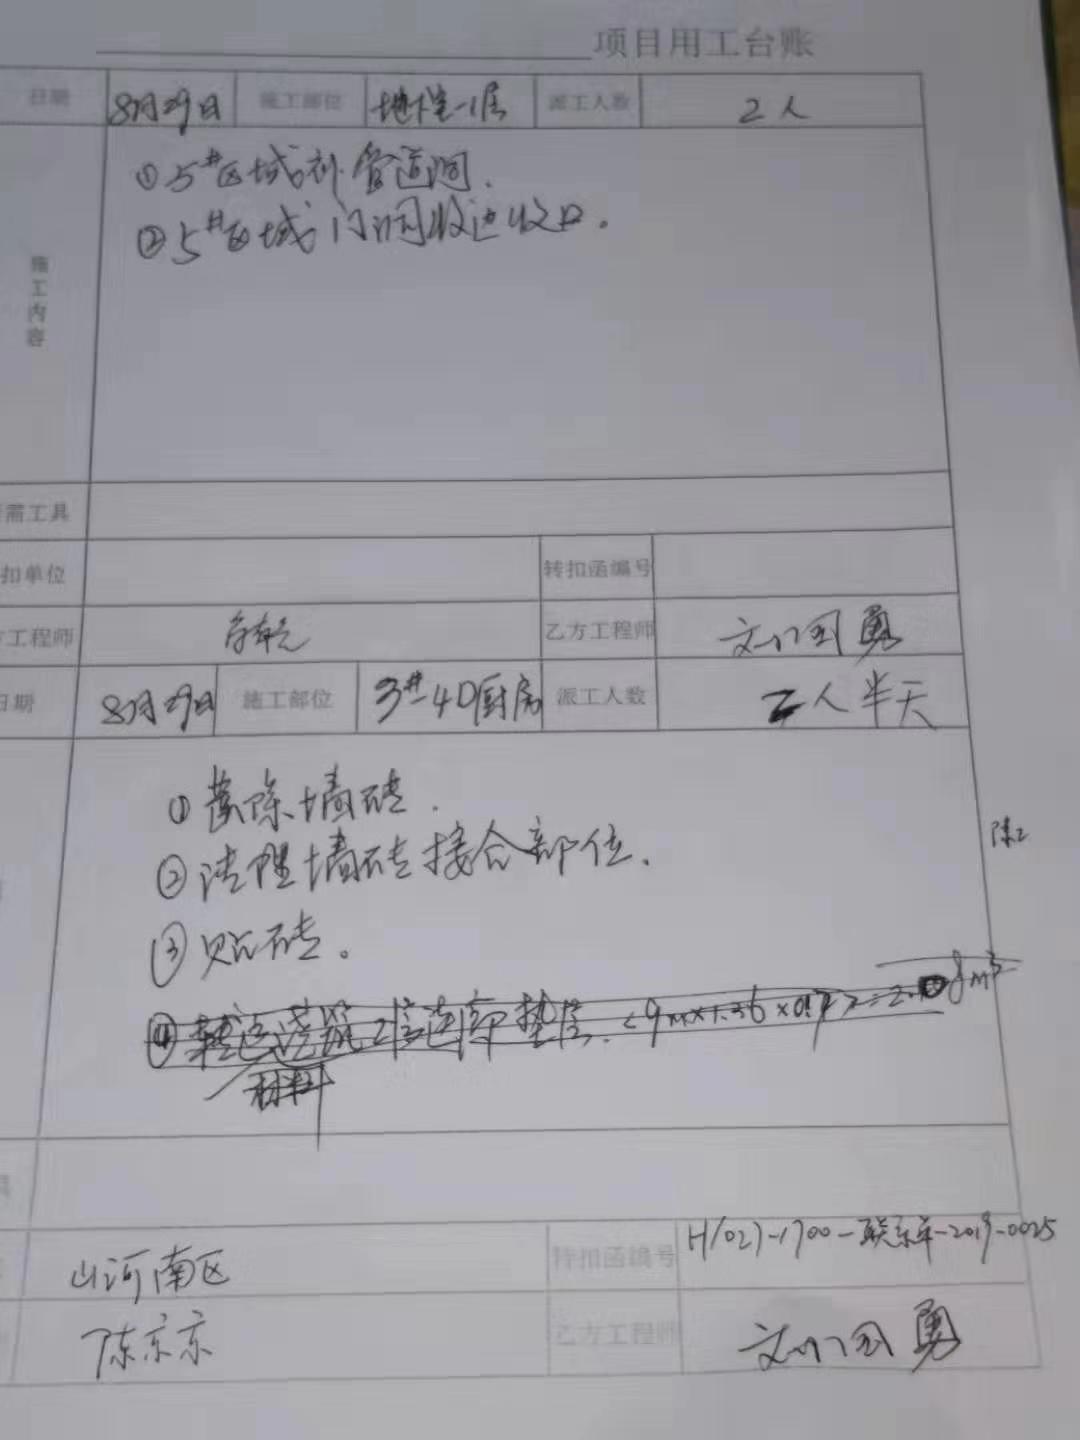 项目用工台账
日期 8月29日 施工部位 地下室-1层 派工人数 2人
施工内容
①5#区域补管道洞.
②5#区域门洞收边收口。
需工具
扣单位 转扣函编号
方工程师 乙方工程师 国勇
日期 8月29日 施工部位 3#-4D厨房 派工人数 2人半天
①凿除墙砖.
②清理墙砖接合部位.
陈
③贴砖。
④转运浇筑 垫层.
材料
山河南区 转扣函编号 H1027-1700-联系单-2019-0025
陈京京 乙方工程师 国勇